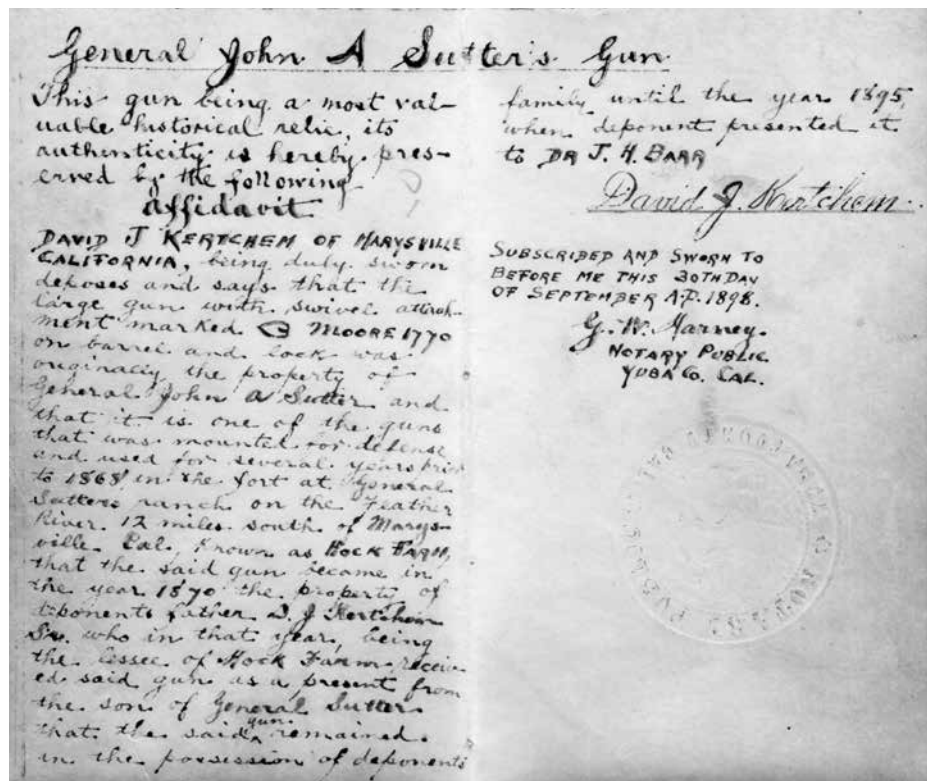 General John A Sutter's Gun
This gun being a most val-
uable historical relic, its
authenticity is hereby pres-
erved by the following
affidavit
DAVID J KERTCHEM OF MARYSVILLE
CALIFORNIA, being duly sworn
deposes and says that the
large gun with swivel attach-
ment marked MOORE 1770
on barrel and lock was
originally the property of
General John A Sutter and
that it is one of the guns
that was mounted for defense
and used for several years prior
to 1868 in the fort at General
Sutters ranch on the Feather
River 12 miles south of Marys-
ville Cal, known as HOCK FARM,
that the said gun became in
the year 1870 the property of
deponents father D. J Kertchem
Sr. who in that year, being
the lessee of Hock Farm receiv-
ed said gun as a present from
the son of General Sutter
that the said gun remained
in the possession of deponents
family until the year 1895,
when deponent presented it
to DR J. H. BARR
David J. Kertchem
SUBSCRIBED AND SWORN TO
BEFORE ME THIS 30TH DAY
OF SEPTEMBER A.D. 1898.
G. W. Harney.
NOTARY PUBLIC.
YUBA CO. CAL.